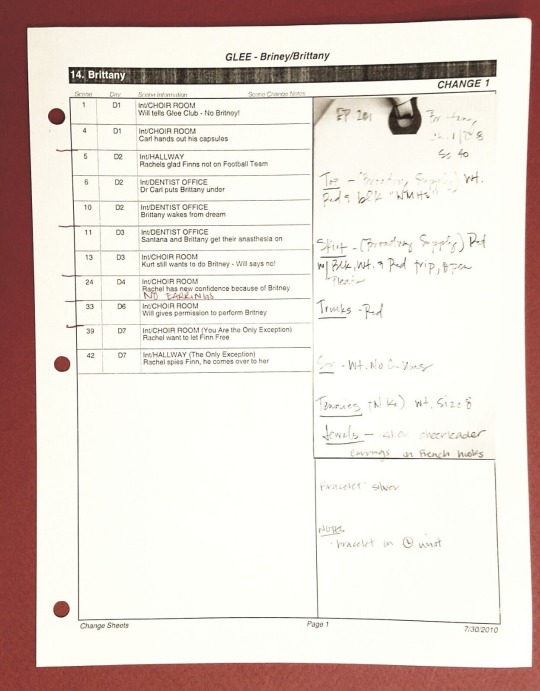 GLEE - Briney/Brittany
14. Brittany
CHANGE 1
Scene Day Scene Information Scene Change Notes
1 D1 Int/CHOIR ROOM
Will tells Glee Club - No Britney!
4 D1 Int/CHOIR ROOM
Carl hands out his capsules
5 D2 Int/HALLWAY
Rachels glad Finns not on Football Team
6 D2 Int/DENTIST OFFICE
Dr Carl puts Brittany under
10 D2 Int/DENTIST OFFICE
Brittany wakes from dream
11 D3 Int/DENTIST OFFICE
Santana and Brittany get their anasthesia on
13 D3 Int/CHOIR ROOM
Kurt still wants to do Britney - Will says no!
24 D4 Int/CHOIR ROOM
Rachel has new confidence because of Britney
NO EARRINGS
33 D6 Int/CHOIR ROOM
Will gives permission to perform Britney
39 D7 Int/CHOIR ROOM (You Are the Only Exception)
Rachel want to let Finn Free
42 D7 Int/HALLWAY (The Only Exception)
Rachel spies Finn, he comes over to her
EP 201
Top - (Broadway Supply) Wt.
Red & blk "WMHS"
Skirt - (Broadway Supply) Red
w/ Blk, Wt. & Red
Trunks - Red
Wt. No
Tennies (Nike) Wt. Size 8
Jewels - silver cheerleader
earrings on French hooks
Bracelet: silver
NOTES
- bracelet on L wrist
Change Sheets Page 1 7/30/2010